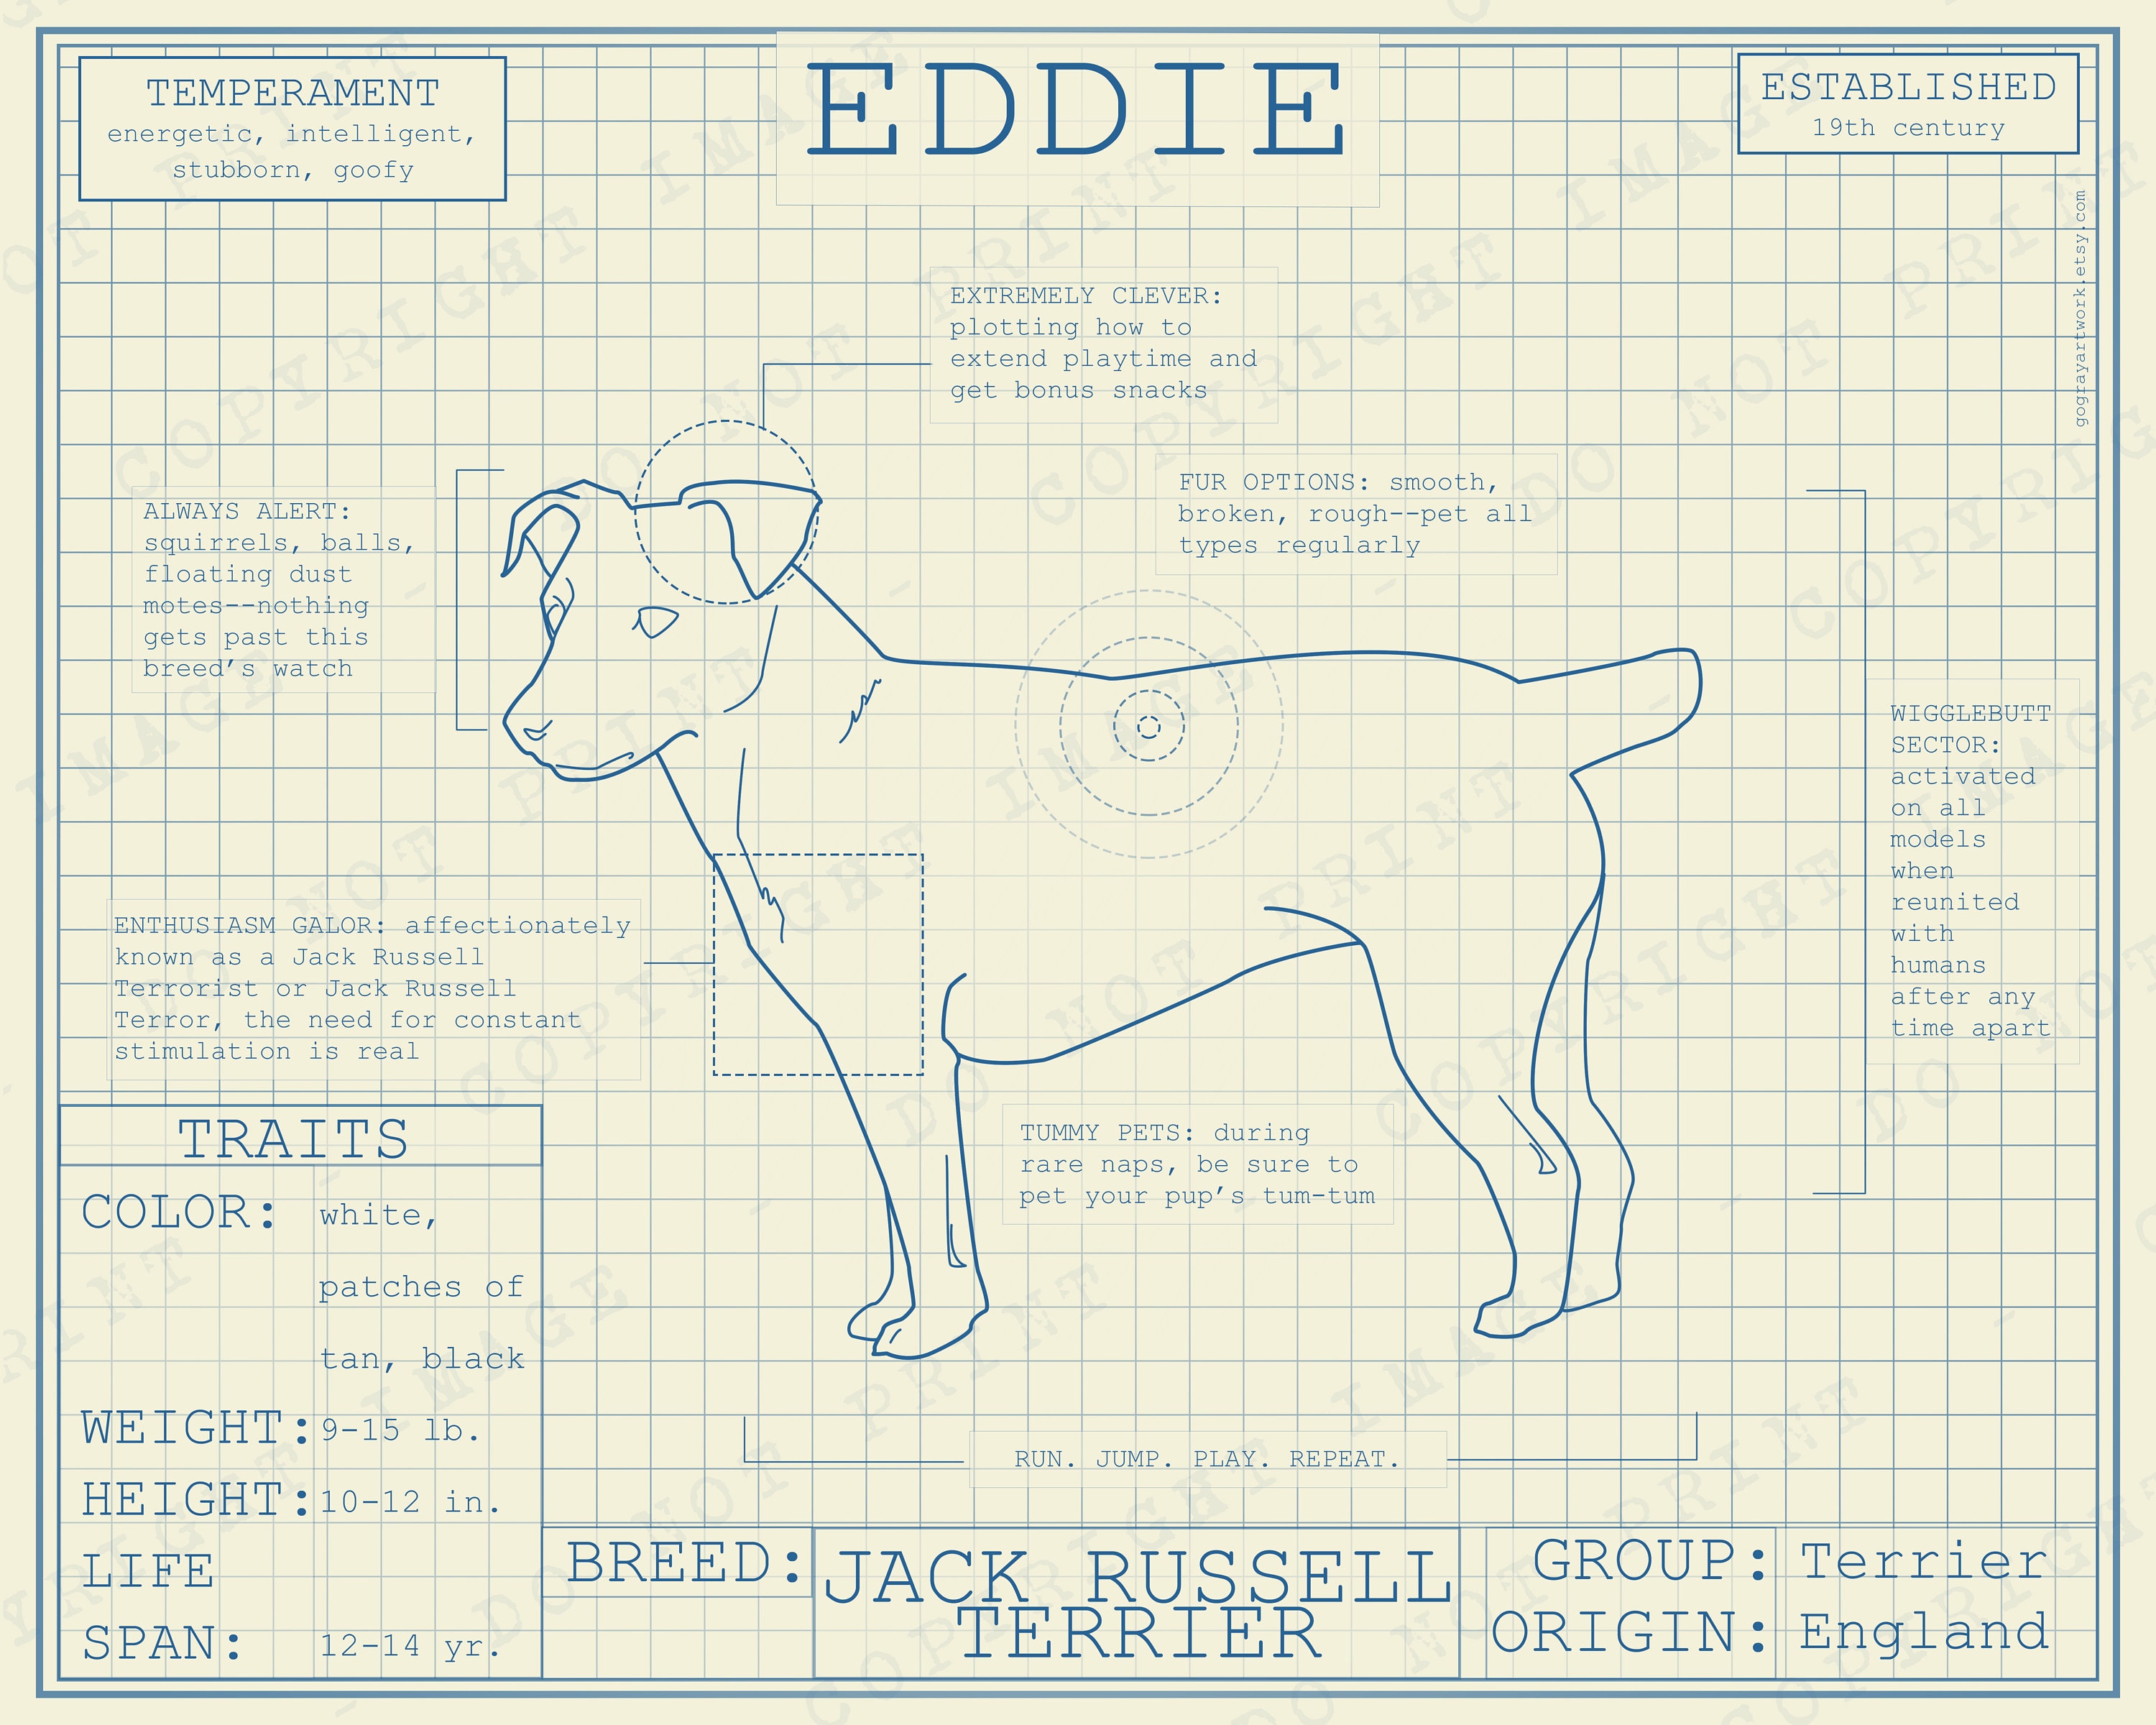 EDDIE
TEMPERAMENT
energetic, intelligent,
stubborn, goofy
ESTABLISHED
19th century
gograyartwork.etsy.com
EXTREMELY CLEVER:
plotting how to
extend playtime and
get bonus snacks
FUR OPTIONS: smooth,
broken, rough--pet all
types regularly
ALWAYS ALERT:
squirrels, balls,
floating dust
motes--nothing
gets past this
breed's watch
WIGGLEBUTT
SECTOR:
activated
on all
models
when
reunited
with
humans
after any
time apart
ENTHUSIASM GALOR: affectionately
known as a Jack Russell
Terrorist or Jack Russell
Terror, the need for constant
stimulation is real
TUMMY PETS: during
rare naps, be sure to
pet your pup's tum-tum
RUN. JUMP. PLAY. REPEAT.
TRAITS
COLOR: white,
patches of
tan, black
WEIGHT: 9-15 lb.
HEIGHT: 10-12 in.
LIFE
SPAN: 12-14 yr.
BREED: JACK RUSSELL
TERRIER
GROUP: Terrier
ORIGIN: England
COPYRIGHT IMAGE - DO NOT PRINT